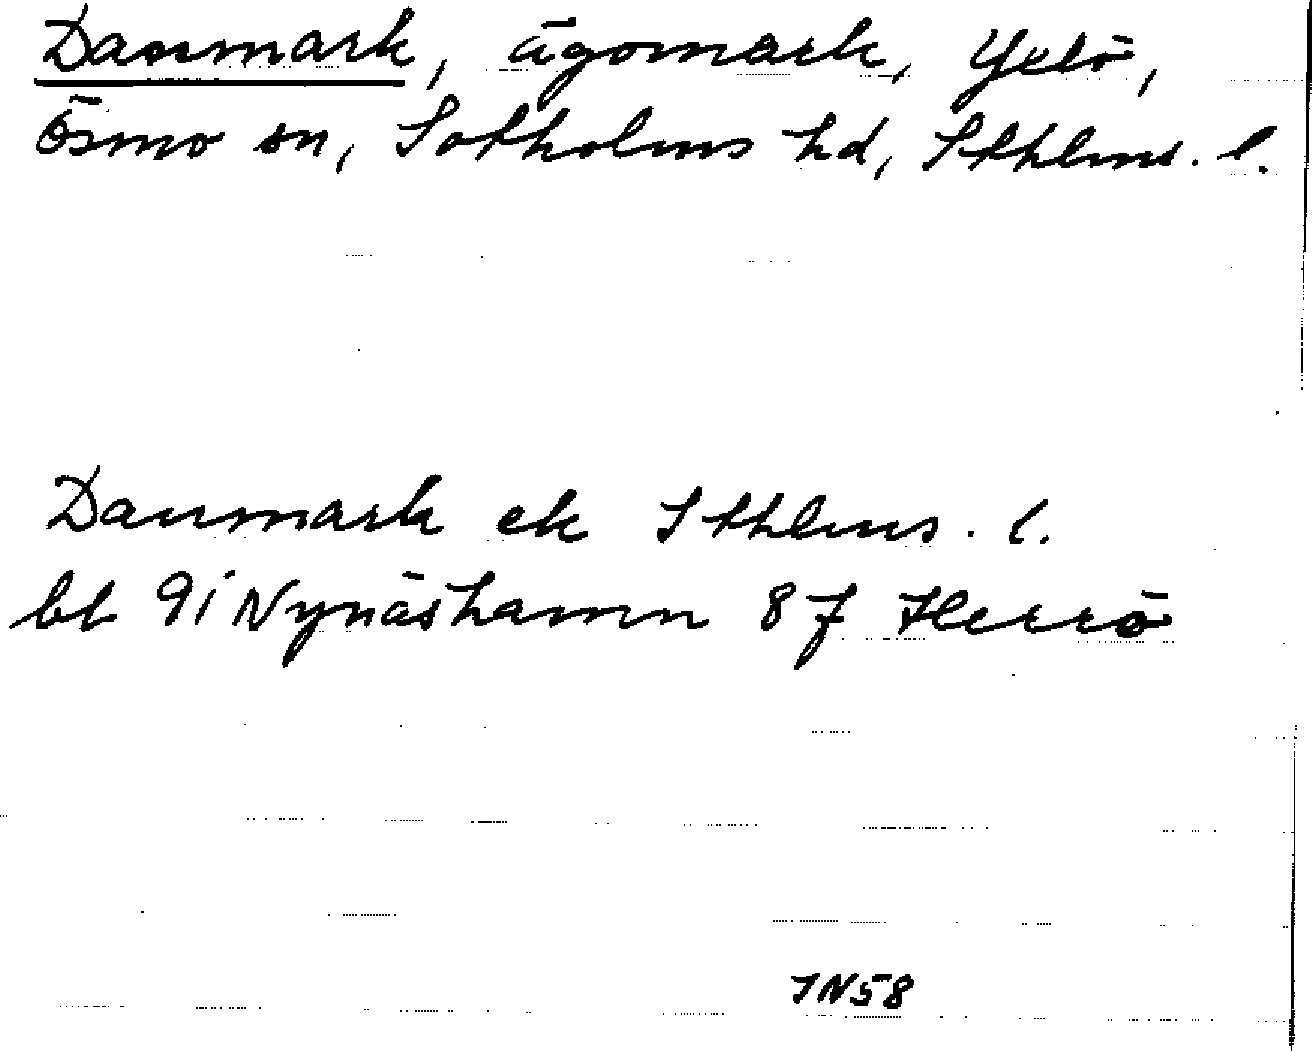 Danmark, ägomark, Yxlö,
Ösmo sn, Sotholms hd, Sthlms. l.
Danmark ek Sthlms. l.
bl 9i Nynäshamn 8f Herrö
TN58